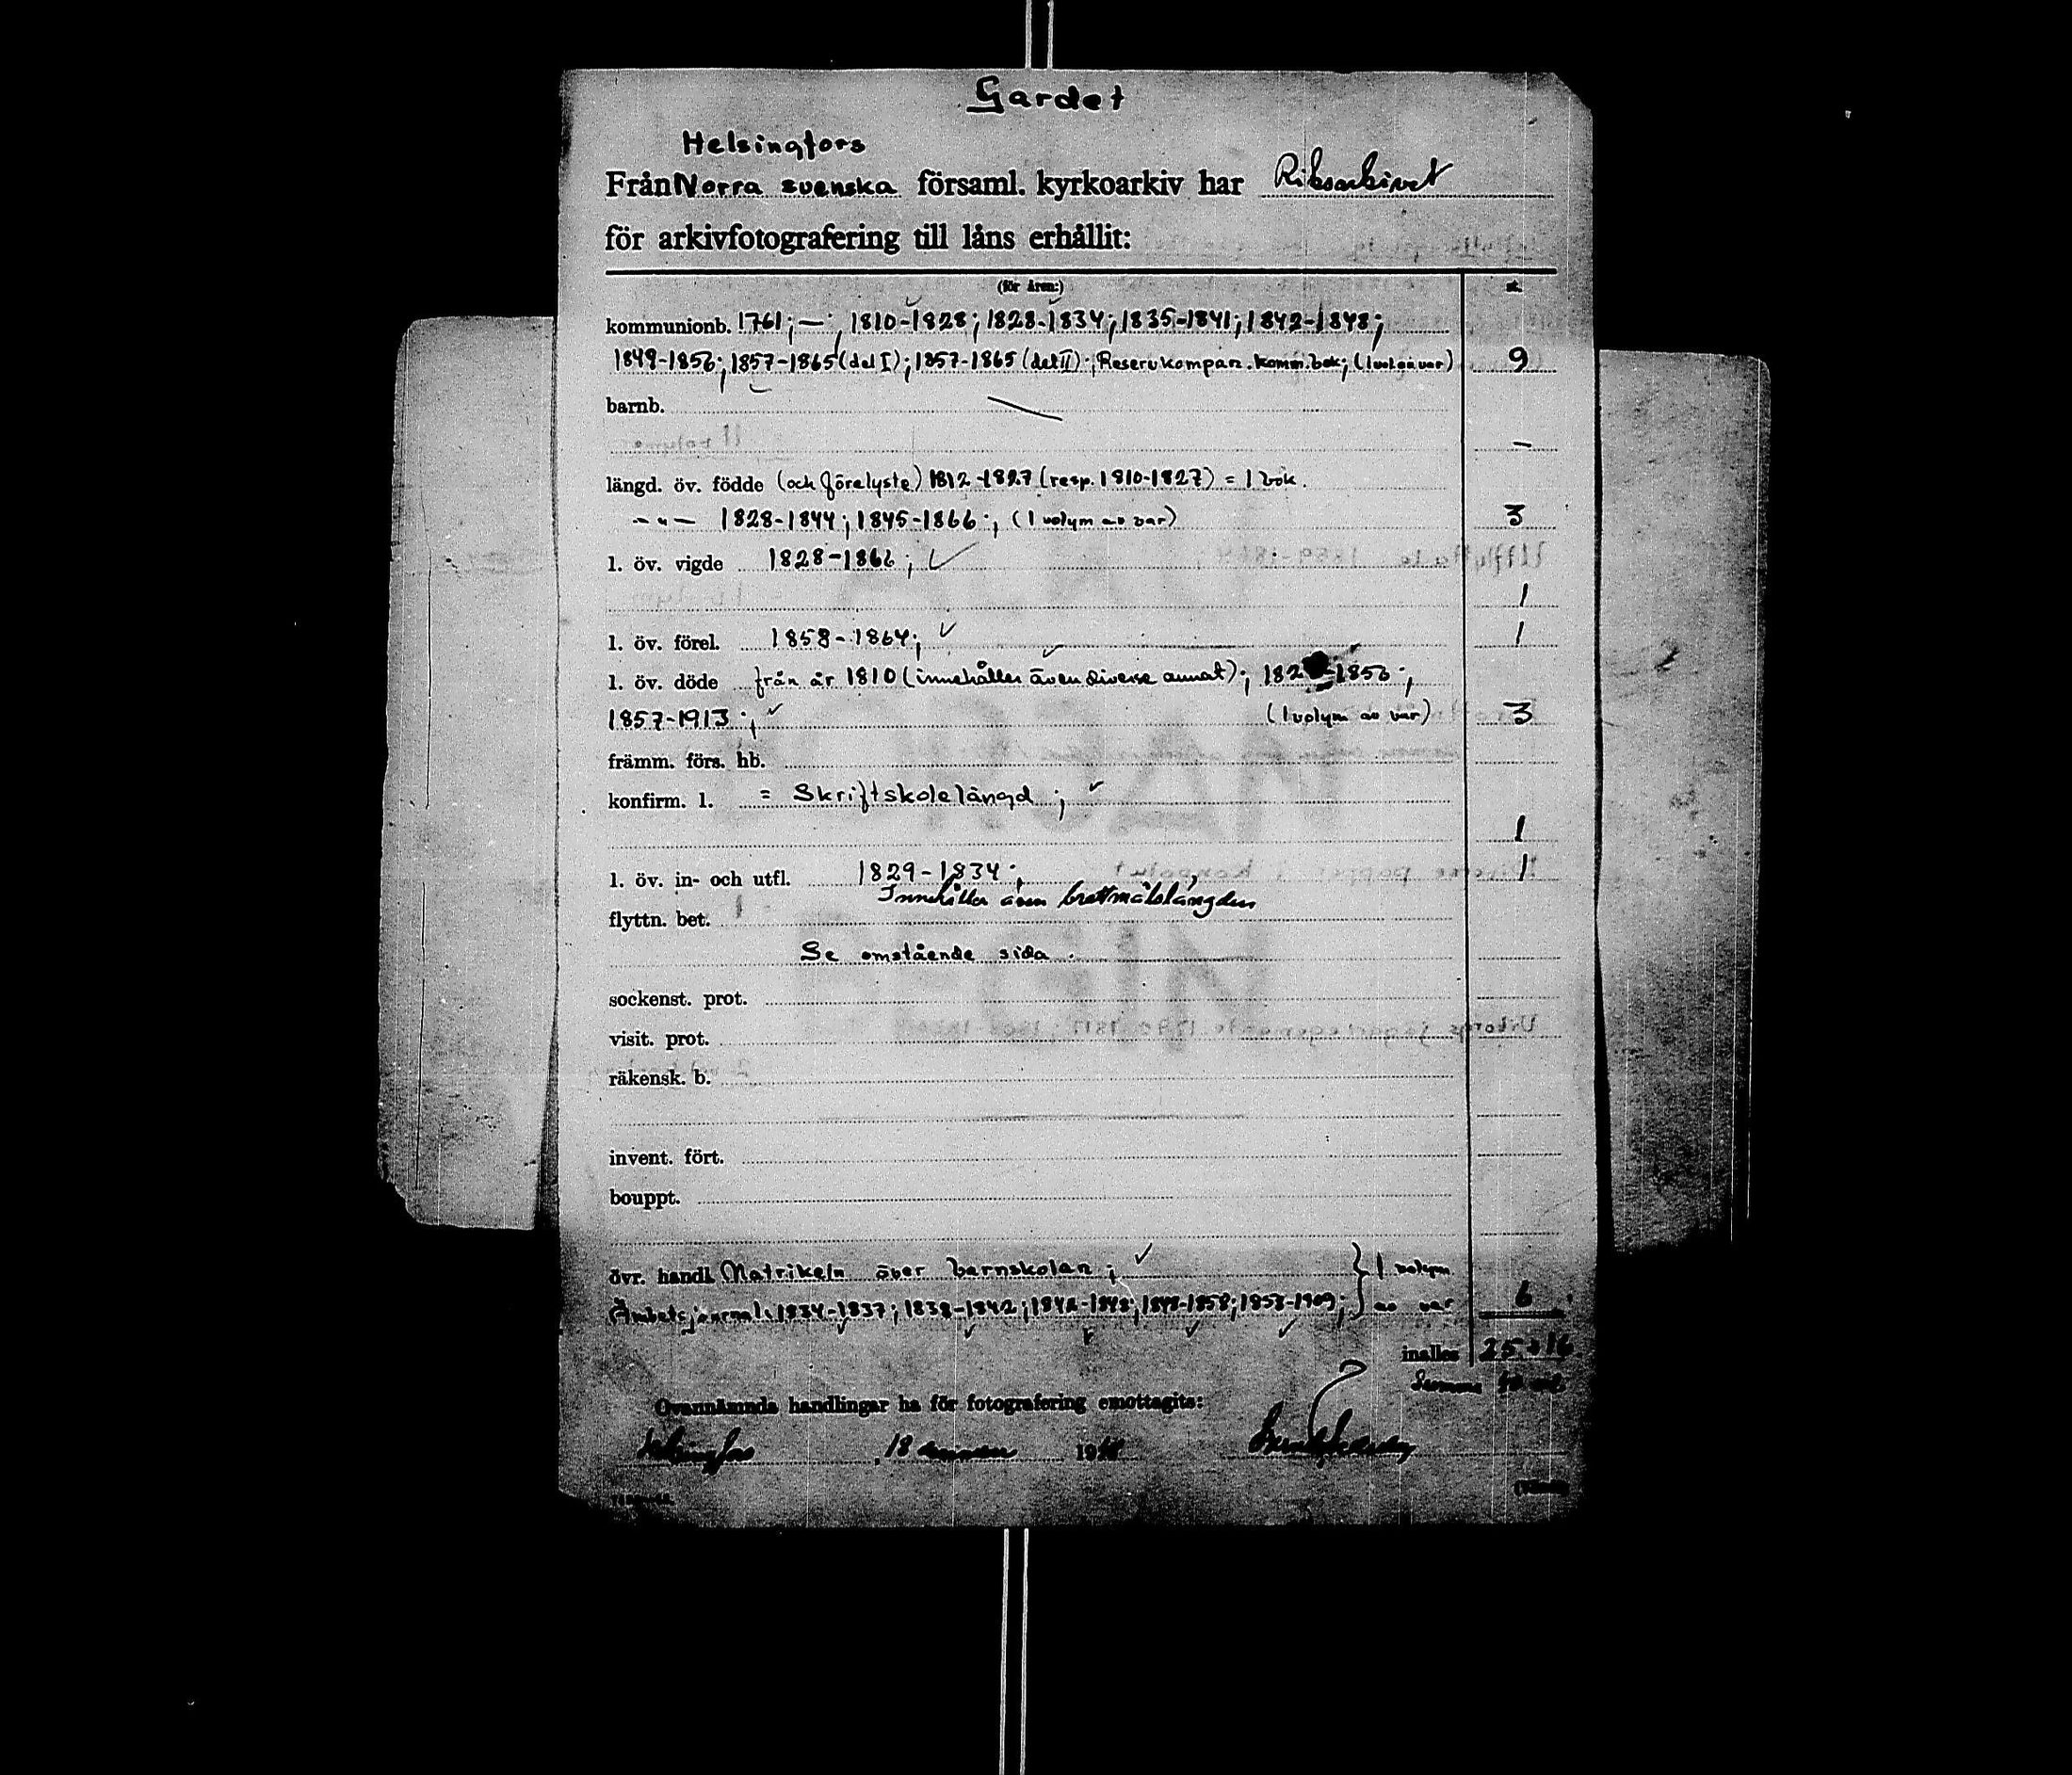 Gardet
Helsingfors
Från Norra svenska församl. kyrkoarkiv har Riksarkivet
för arkivfotografering till låns erhållit:
(för åren:) st.
kommunionb. 1761; — ; 1810-1828; 1828-1834; 1835-1841; 1842-1848;
1849-1856; 1857-1865 (del I); 1857-1865 (del II); Reservkompan. komm.bok; (1 vol. av var) 9
barnb.
—
längd. öv. födde (och förelyste) 1812-1827 (resp. 1810-1827) = 1 bok.
-"- 1828-1844; 1845-1866; (1 volym av var) 3
l. öv. vigde 1828-1866; ✓
1
l. öv. förel. 1858-1864; ✓ 1
l. öv. döde från år 1810 (innehåller även diverse annat); 182 -1856;
1857-1913; ✓ (1 volym av var) 3
främm. förs. hb.
konfirm. l. = Skriftskolelängd; ✓
1
l. öv. in- och utfl. 1829-1834; 1
Innehåller även brottmålslängden
flyttn. bet.
Se omstående sida.
sockenst. prot.
visit. prot.
räkensk. b.
invent. fört.
bouppt.
övr. handl. Matrikeln över barnskolan; ✓ } 1 volym
Ämbetsjournal: 1834-1837; 1838-1842; 1842-1848; 1848-1858; 1858-1909; av var 6
inalles 25 + 16
Summa
Ovannämnda handlingar ha för fotografering emottagits:
Helsingfors, 18 19